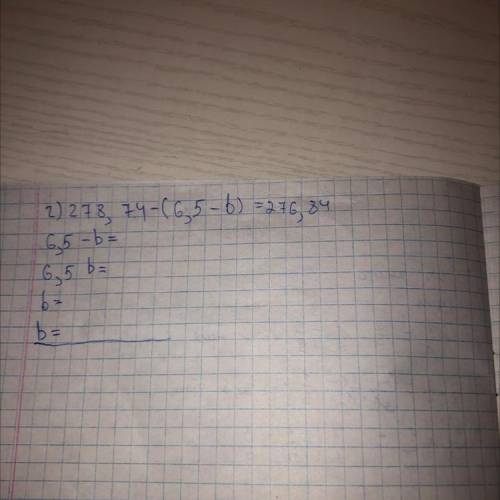 г) 278, 74-(6,5-b) =276,84
6,5-b=
6,5 b=
b=
b=